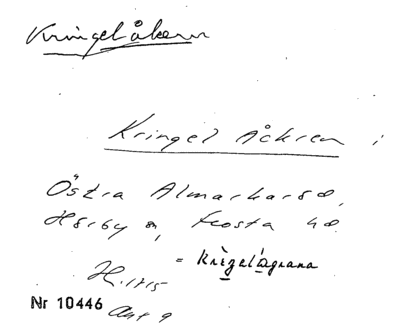 Kringelåkern
Kringel Åkren i
Östra Almarkaröd,
Hörby sn, Frosta hd.
= krìgelågrana
H. 1715
Nr 10446 Akt 9